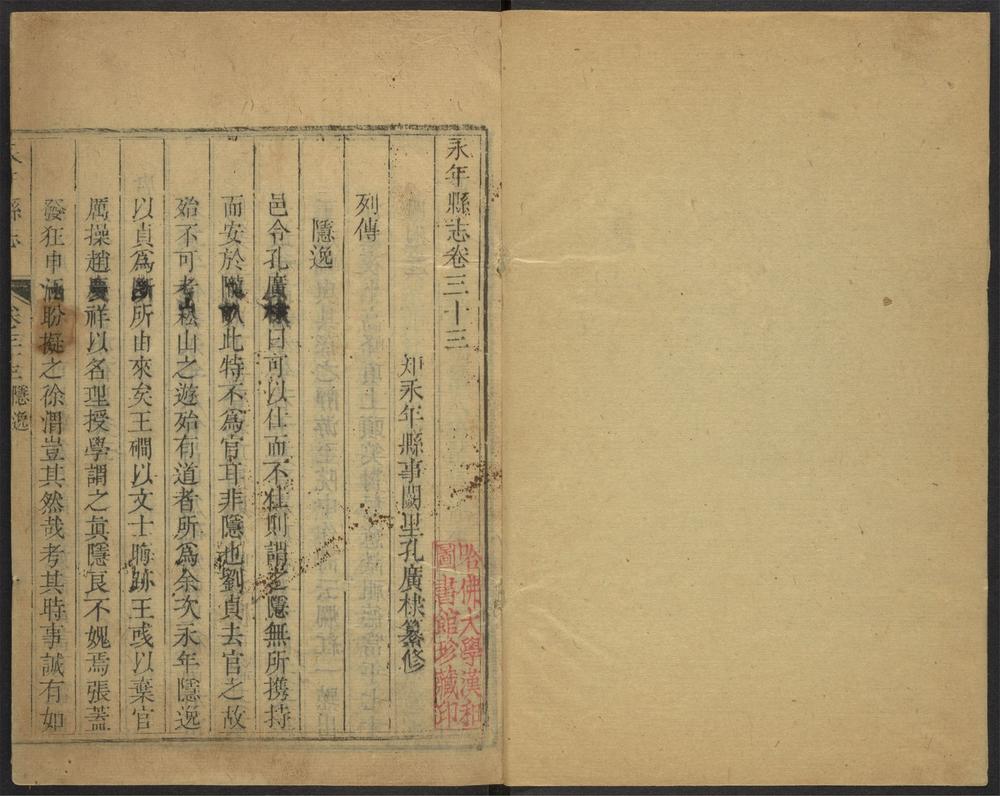 永年縣志卷三十三
知永年縣事闕里孔廣棣纂修
列傳
隱逸
邑令孔廣棣曰可以仕而不仕則謂之隱無所携持
而安於隴畝此特不為官耳非隱也劉貞去官之故
殆不可考崧山之遊殆有道者所為余次永年隱逸
以貞為斷所由來矣王磵以文士晦跡王彧以棄官
厲操趙慶祥以名理授學謂之真隱良不媿焉張蓋
發狂申涵盼擬之徐渭豈其然哉考其時事誠有如
縣志
卷三十三 隱逸
哈佛大學漢和
圖書館珍藏印